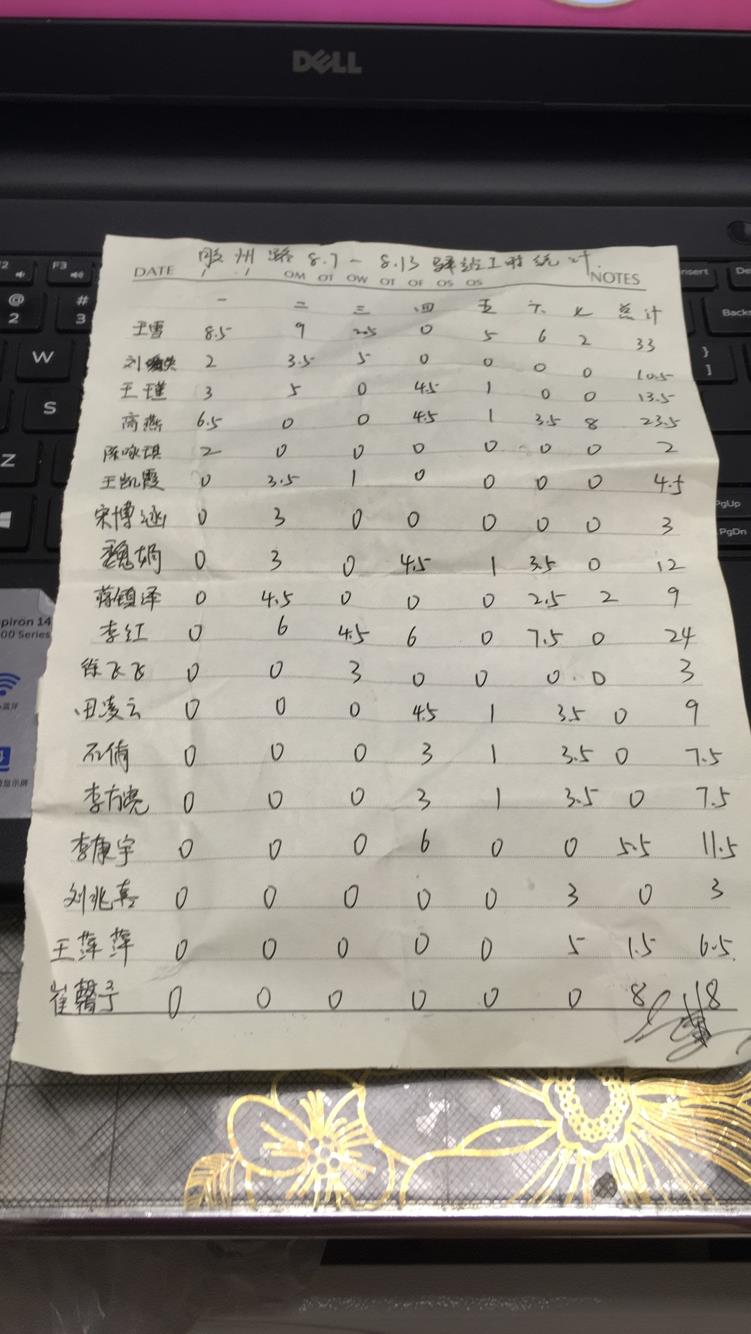 DELL
F2
F3
Insert
@
2
#
3
Backs
W
}
]
S
Z
PgUp
PgDn
胶州路 8.7-8.13 驿站工时统计
DATE / / OM OT OW OT OF OS OS NOTES
一 二 三 四 五 六 七 总计
王雪 8.5 9 2.5 0 5 6 2 33
刘 2 3.5 5 0 0 0 0 10.5
王瑾 3 5 0 4.5 1 0 0 13.5
高燕 6.5 0 0 4.5 1 3.5 8 23.5
陈咏琪 2 0 0 0 0 0 0 2
王凯霞 0 3.5 1 0 0 0 0 4.5
宋博涵 0 3 0 0 0 0 0 3
魏娟 0 3 0 4.5 1 3.5 0 12
蒋镇泽 0 4.5 0 0 0 2.5 2 9
李红 0 6 4.5 6 0 7.5 0 24
徐飞飞 0 0 3 0 0 0 0 3
田凌云 0 0 0 4.5 1 3.5 0 9
石倩 0 0 0 3 1 3.5 0 7.5
李方亮 0 0 0 3 1 3.5 0 7.5
李康宇 0 0 0 6 0 0 5.5 11.5
刘兆真 0 0 0 0 0 3 0 3
王萍萍 0 0 0 0 0 5 1.5 6.5
崔馨予 0 0 0 0 0 0 8 8
piron 14
00 Series
显示屏